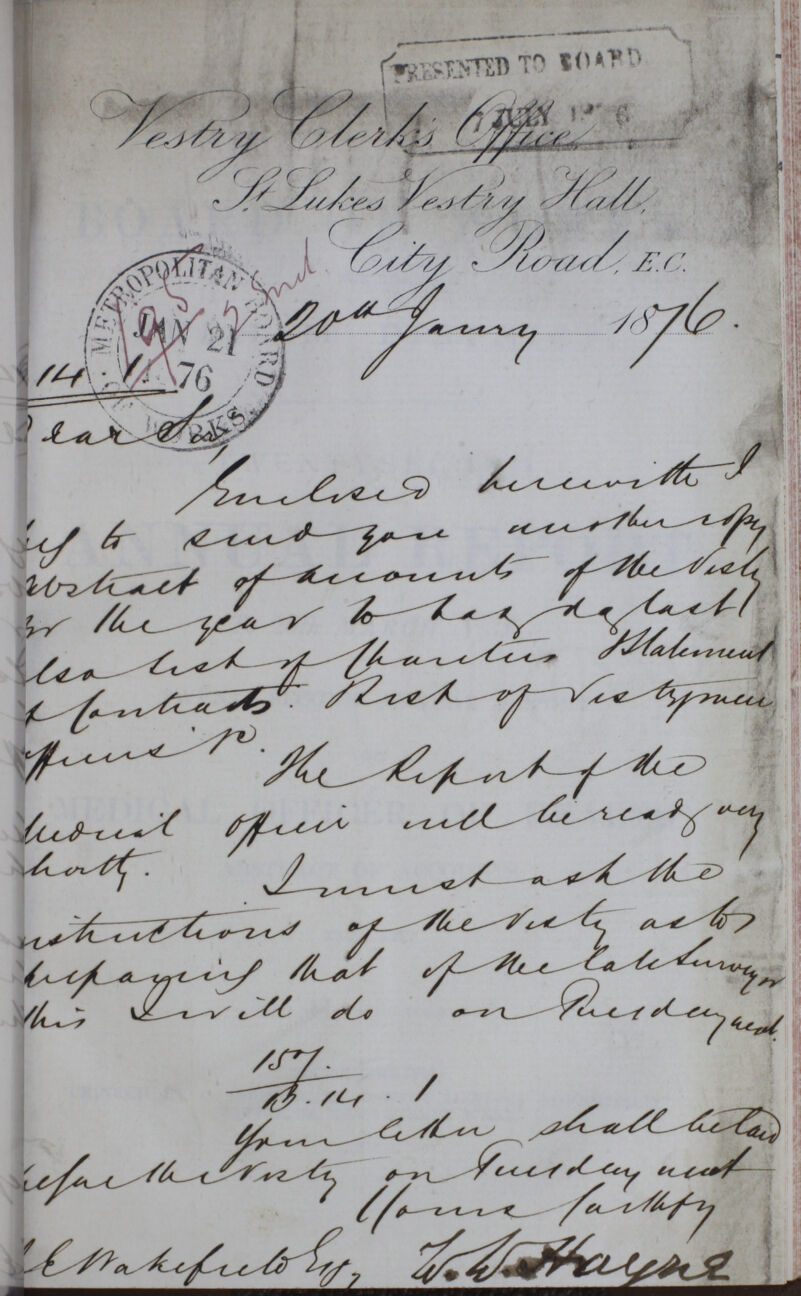 PRESENTED TO BOARD
7 JULY 1876
Vestry Clerk's Office,
St. Lukes Vestry Hall,
City Road, E.C.
METROPOLITAN BOARD
JAN 21
76
WORKS
20th Janry 1876.
14
ear Sir,
Enclosed herewith I
eg to send you another copy
abstract of accounts of the Vestry
or the year to Lady day last
lso list of Charities & Statement
f Contracts. & List of Vestrymen
fficers &c.
The Report of the
Medical Officer will be ready very
hortly.
I must ask the
nstructions of the Vestry as to
preparing that of the late Surveyor
this I will do on Tuesday next.
157.
B. 14. 1
Your letter shall be laid
efore the Vestry on Tuesday next
Yours faithfy
E Wakefield Esq, W. W. Hayne